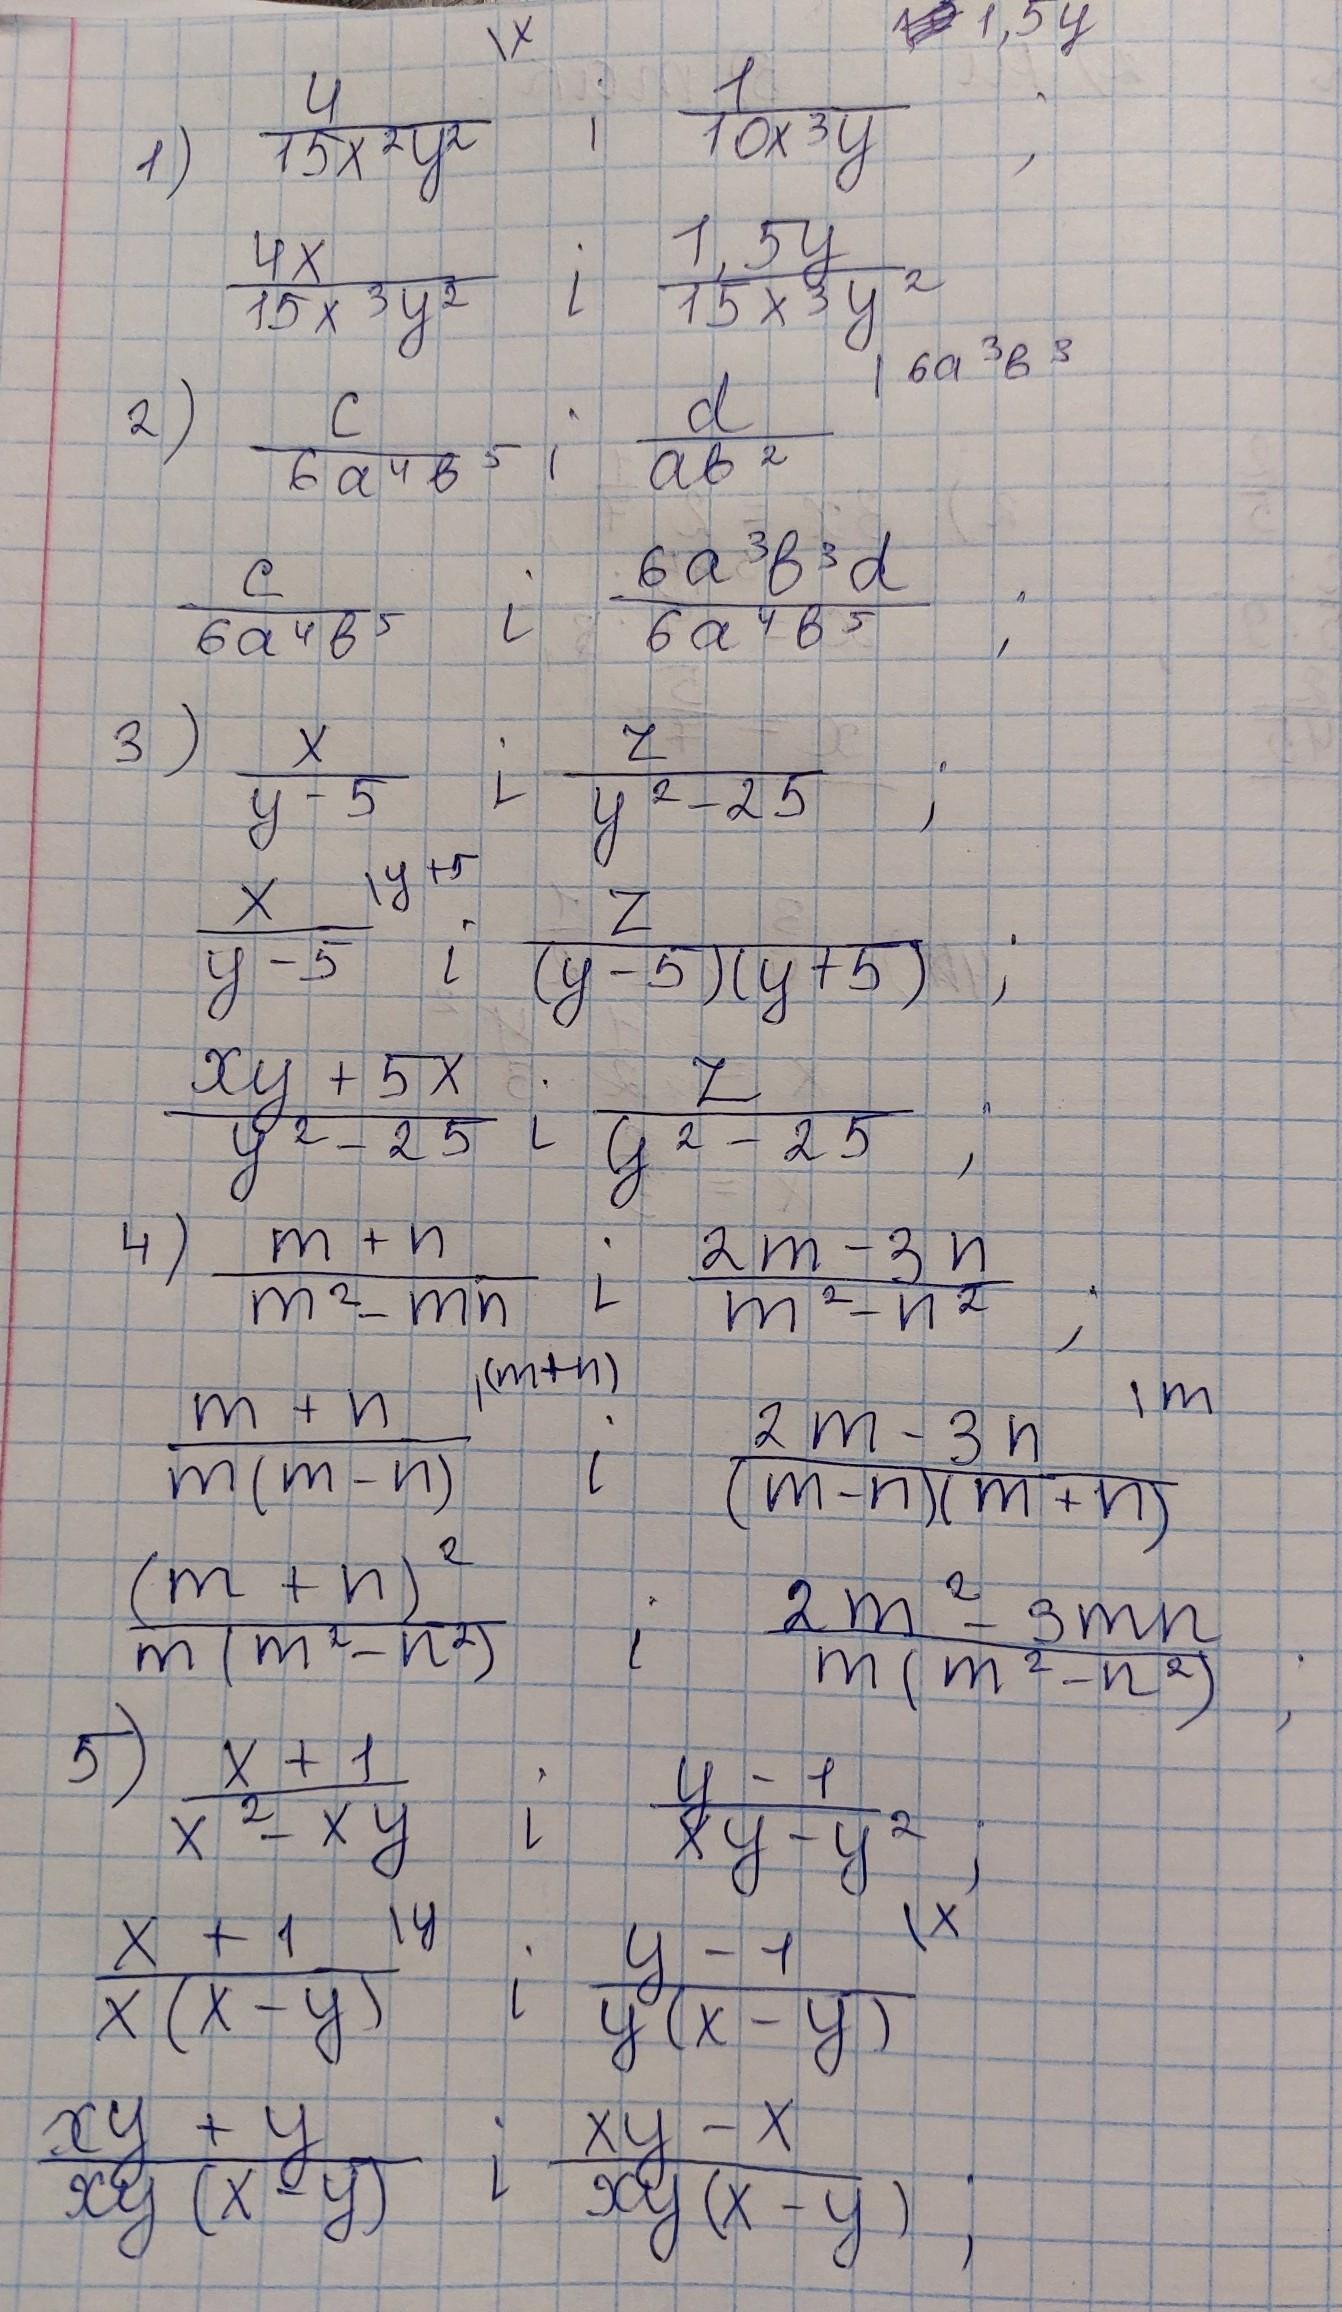 \x 1,5y
1) 4/(15x²y²) і 1/(10x³y) ;
4x/(15x³y²) і 1,5y/(15x³y²)
|6a³b³
2) c/(6a⁴b⁵) і d/(ab²)
c/(6a⁴b⁵) і 6a³b³d/(6a⁴b⁵) ;
3) x/(y-5) і z/(y²-25) ;
x/(y-5) \y+5 і z/((y-5)(y+5)) ;
(xy+5x)/(y²-25) і z/(y²-25) ;
4) (m+n)/(m²-mn) і (2m-3n)/(m²-n²) ;
(m+n)/(m(m-n)) \(m+n) і (2m-3n)/((m-n)(m+n)) \m
(m+n)²/(m(m²-n²)) і (2m²-3mn)/(m(m²-n²)) ;
5) (x+1)/(x²-xy) і (y-1)/(xy-y²) ;
(x+1)/(x(x-y)) \y і (y-1)/(y(x-y)) \x
(xy+y)/(xy(x-y)) і (xy-x)/(xy(x-y)) ;